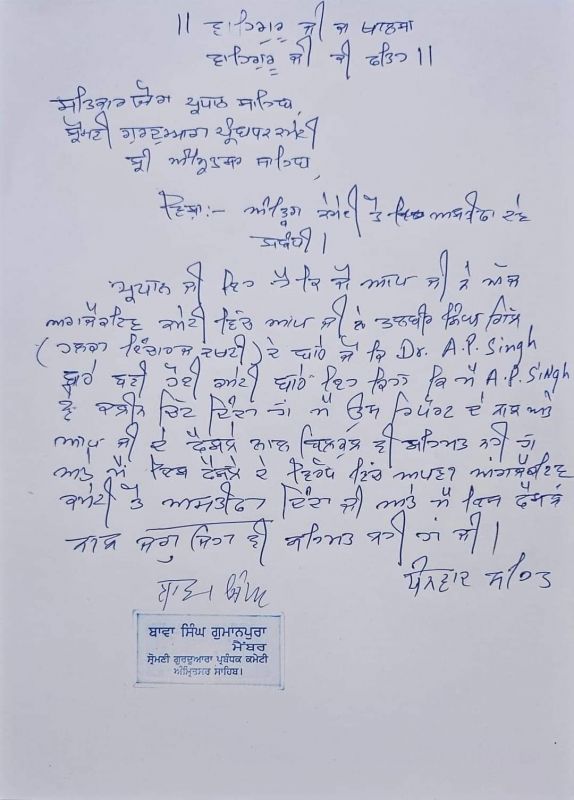 ॥ ਵਾਹਿਗੁਰੂ ਜੀ ਕਾ ਖਾਲਸਾ
ਵਾਹਿਗੁਰੂ ਜੀ ਕੀ ਫਤਿਹ ॥
ਸਤਿਕਾਰਯੋਗ ਪ੍ਰਧਾਨ ਸਾਹਿਬ,
ਸ਼੍ਰੋਮਣੀ ਗੁਰਦੁਆਰਾ ਪ੍ਰੰਬਧਕ ਕਮੇਟੀ
ਸ਼੍ਰੀ ਅੰਮ੍ਰਿਤਸਰ ਸਾਹਿਬ,
ਵਿਸ਼ਾ:- ਅੰਤ੍ਰਿਗ ਕਮੇਟੀ ਤੋਂ ਅਸਤੀਫਾ ਦੇਣ
ਸਬੰਧੀ ।
ਪ੍ਰਧਾਨ ਜੀ ਇਹ ਹੈ ਕਿ ਜੋ ਆਪ ਜੀ ਨੇ ਅੱਜ
ਅਗਜੈਕਟਿਵ ਕਮੇਟੀ ਵਿੱਚ ਆਪ ਜੀ ਨੇ ਤਲਬੀਰ ਸਿੰਘ ਗਿੱਲ
(ਹਲਕਾ ਇੰਚਾਰਜ ਦਖਣੀ) ਦੇ ਬਾਰੇ ਜੋ ਕਿ Dr. A.P. Singh
ਬਾਰੇ ਬਣੀ ਹੋਈ ਕਮੇਟੀ ਬਾਰੇ ਇਹ ਕਿਹਾ ਕਿ ਮੈਂ A.P. Singh
ਨੂੰ ਕਲੀਨ ਚਿੱਟ ਦਿੰਦਾ ਹਾਂ ਮੈਂ ਉਸ ਰਿਪੋਰਟ ਦੇ ਨਾਲ ਅਤੇ
ਆਪ ਜੀ ਦੇ ਫੈਸਲੇ ਨਾਲ ਬਿਲਕੁਲ ਵੀ ਸਹਿਮਤ ਨਹੀ ਹਾਂ
ਅਤੇ ਮੈਂ ਇਸ ਫੈਸਲੇ ਦੇ ਵਿਰੋਧ ਵਿੱਚ ਆਪਣਾ ਅਗਜੈਕਟਿਵ
ਕਮੇਟੀ ਤੋਂ ਅਸਤੀਫਾ ਦਿੰਦਾ ਜੀ ਅਤੇ ਮੈਂ ਇਸ ਫੈਸਲੇ
ਨਾਲ ਜਰਾ ਜਿਹਾ ਵੀ ਸਹਿਮਤ ਨਹੀ ਹਾਂ ਜੀ ।
ਧੰਨਵਾਦ ਸਹਿਤ
ਬਾਵਾ ਸਿੰਘ
ਬਾਵਾ ਸਿੰਘ ਗੁਮਾਨਪੁਰਾ
ਮੈਂਬਰ
ਸ਼੍ਰੋਮਣੀ ਗੁਰਦੁਆਰਾ ਪ੍ਰਬੰਧਕ ਕਮੇਟੀ
ਅੰਮ੍ਰਿਤਸਰ ਸਾਹਿਬ।